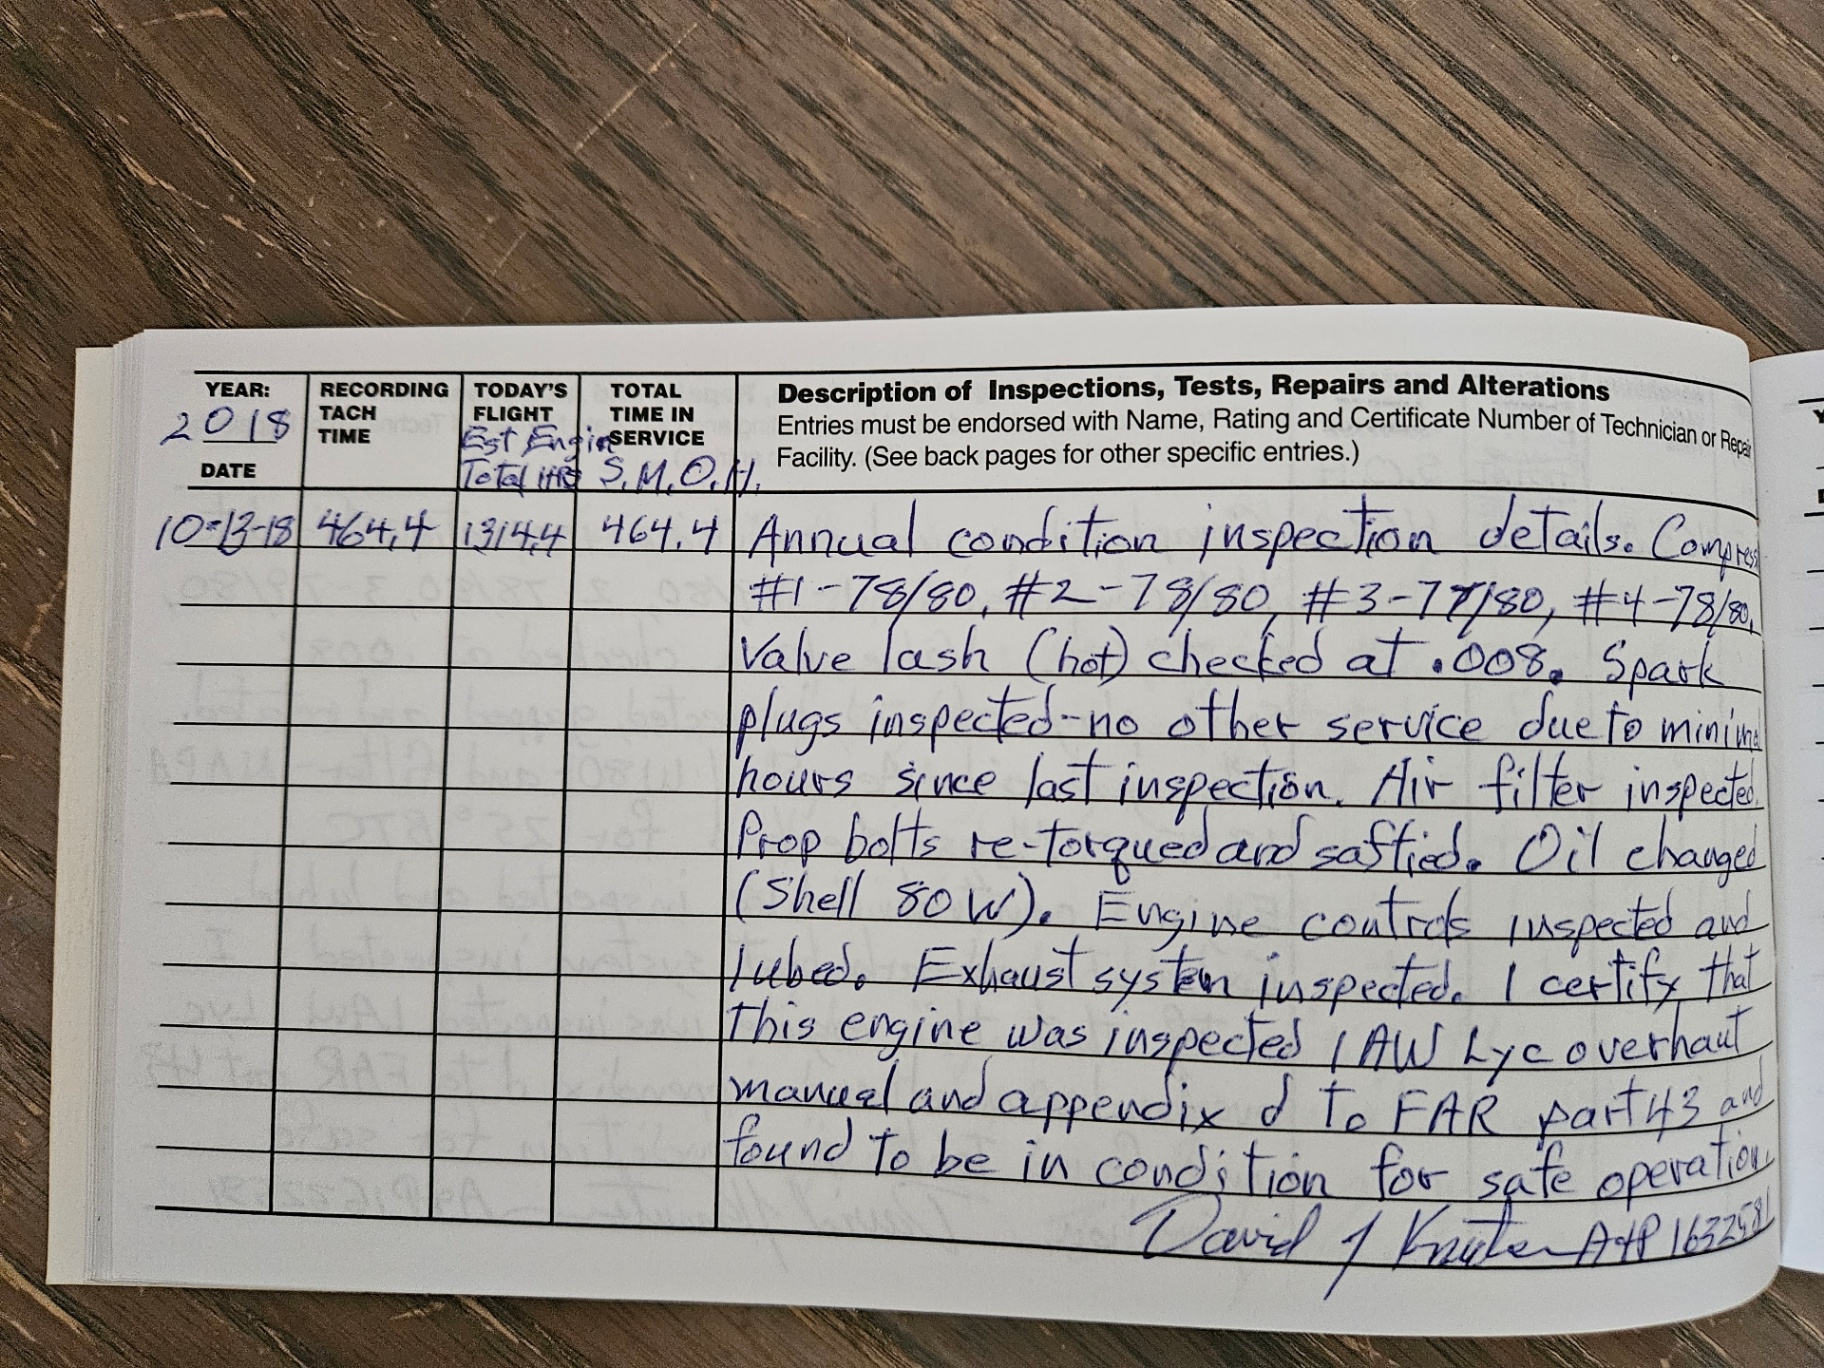 YEAR: RECORDING TODAY'S TOTAL Description of Inspections, Tests, Repairs and Alterations
2018 TACH FLIGHT TIME IN Entries must be endorsed with Name, Rating and Certificate Number of Technician or Repair
TIME Est Engine SERVICE Facility. (See back pages for other specific entries.)
DATE Total HRS S.M.O.H.
10-13-18 464.4 1314.4 464.4 Annual condition inspection details. Compress
#1-78/80, #2-78/80, #3-77/80, #4-78/80.
Valve lash (hot) checked at .008. Spark
plugs inspected-no other service due to minimal
hours since last inspection. Air filter inspected.
Prop bolts re-torqued and saftied. Oil changed
(Shell 80W). Engine controls inspected and
lubed. Exhaust system inspected. I certify that
this engine was inspected IAW Lyc overhaul
manual and appendix d to FAR part 43 and
found to be in condition for safe operation.
David J A+P 1632581